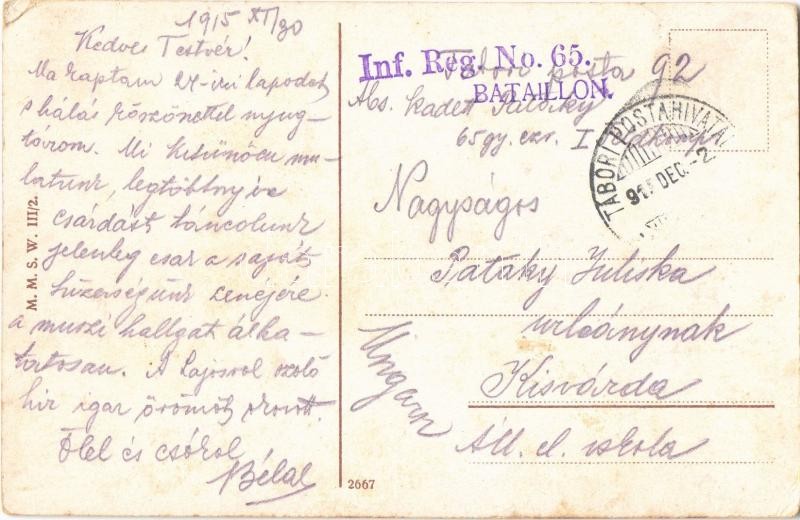 1915 XI/30
Kedves Testvér!
Ma kaptam 24-iki lapodat
s hálás köszönettel nyug-
tázom. Mi kitünően mu-
latunk, legtöbbnyire
csárdást táncolunk
jelenleg csak a saját
tüzérségünk zenéjére
a muszka hallgat álha-
tatosan. A Lajosról szóló
hír igaz örömöt okozott.
Ölel és csókol
Béla
M. M. S. W. III/2.
2667
Inf. Reg. No. 65.
BATAILLON.
Tábori posta 92
Abs. kadet Pataky
65 gy. ezr. I
TÁBORI POSTAHIVATAL
915 DEC. -2
Nagyságos
Pataky Juliska
urleánynak
Kisvárda
Áll. el. iskola
Ungarn